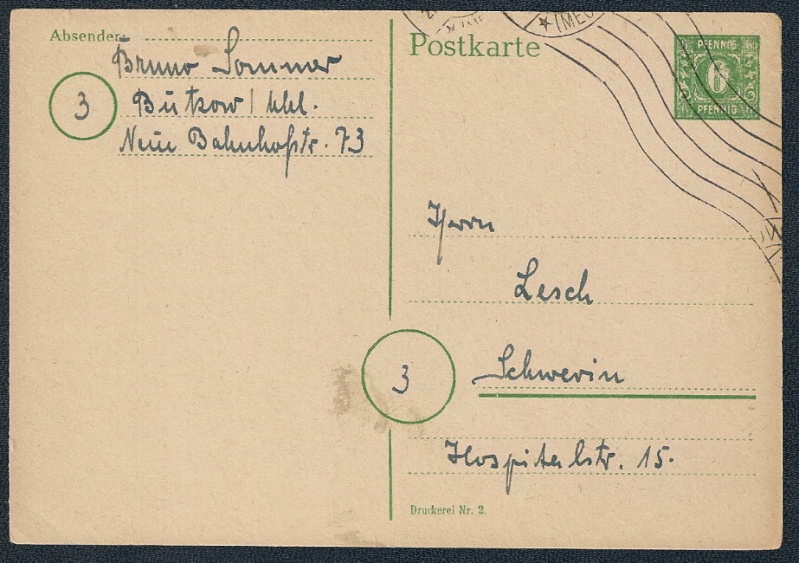 Absender:
Bruno Sommer
3
Bützow / Mkl.
Neue Bahnhofstr. 73
Postkarte
PFENNIG
6
PFENNIG
Herrn
Lesch
3
Schwerin
Hospitalstr. 15.
Druckerei Nr. 2.